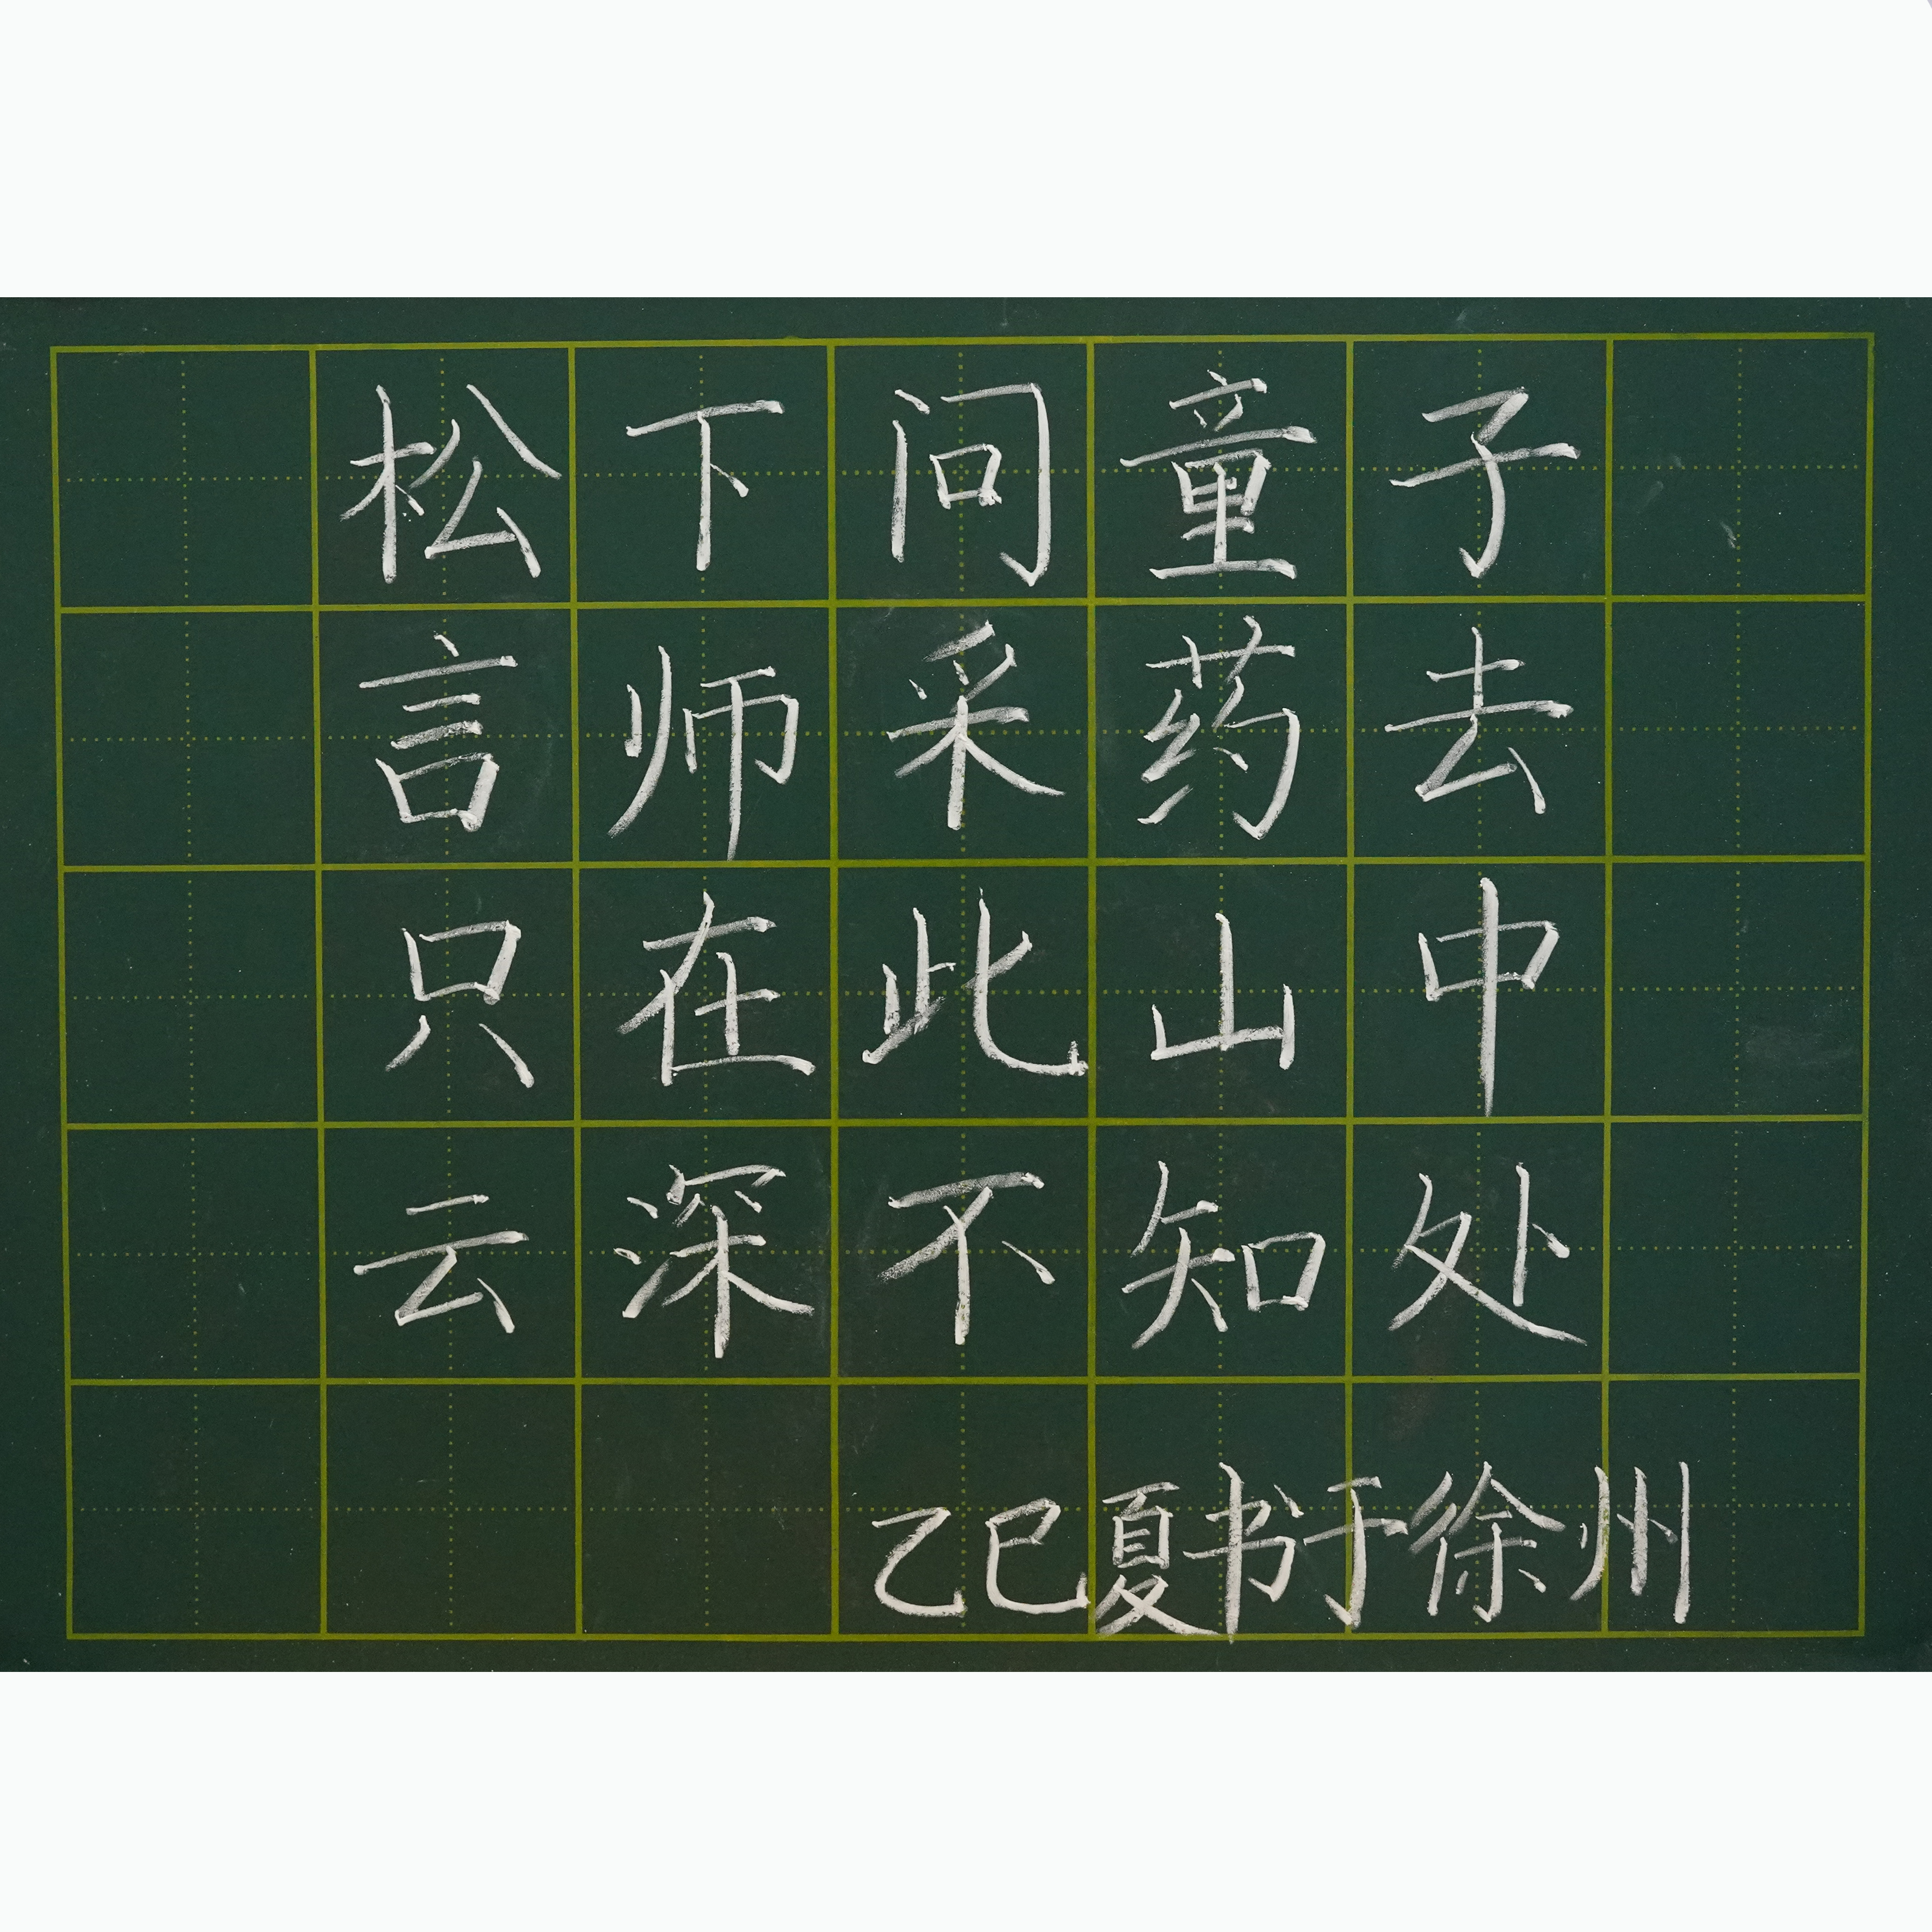 松下问童子
言师采药去
只在此山中
云深不知处
乙巳夏书于徐州